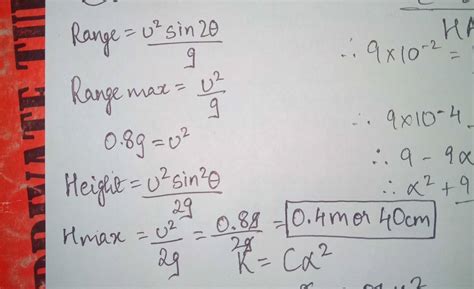 Range = υ² sin 2θ / g
Range max = υ² / g
0.8g = υ²
Height = υ² sin² θ / 2g
Hmax = υ² / 2g = 0.8g / 2g = 0.4m or 40cm
K = Cα²
HA
∴ 9×10⁻² =
9×10⁻⁴
∴ 9 - 9α
∴ α² + 9